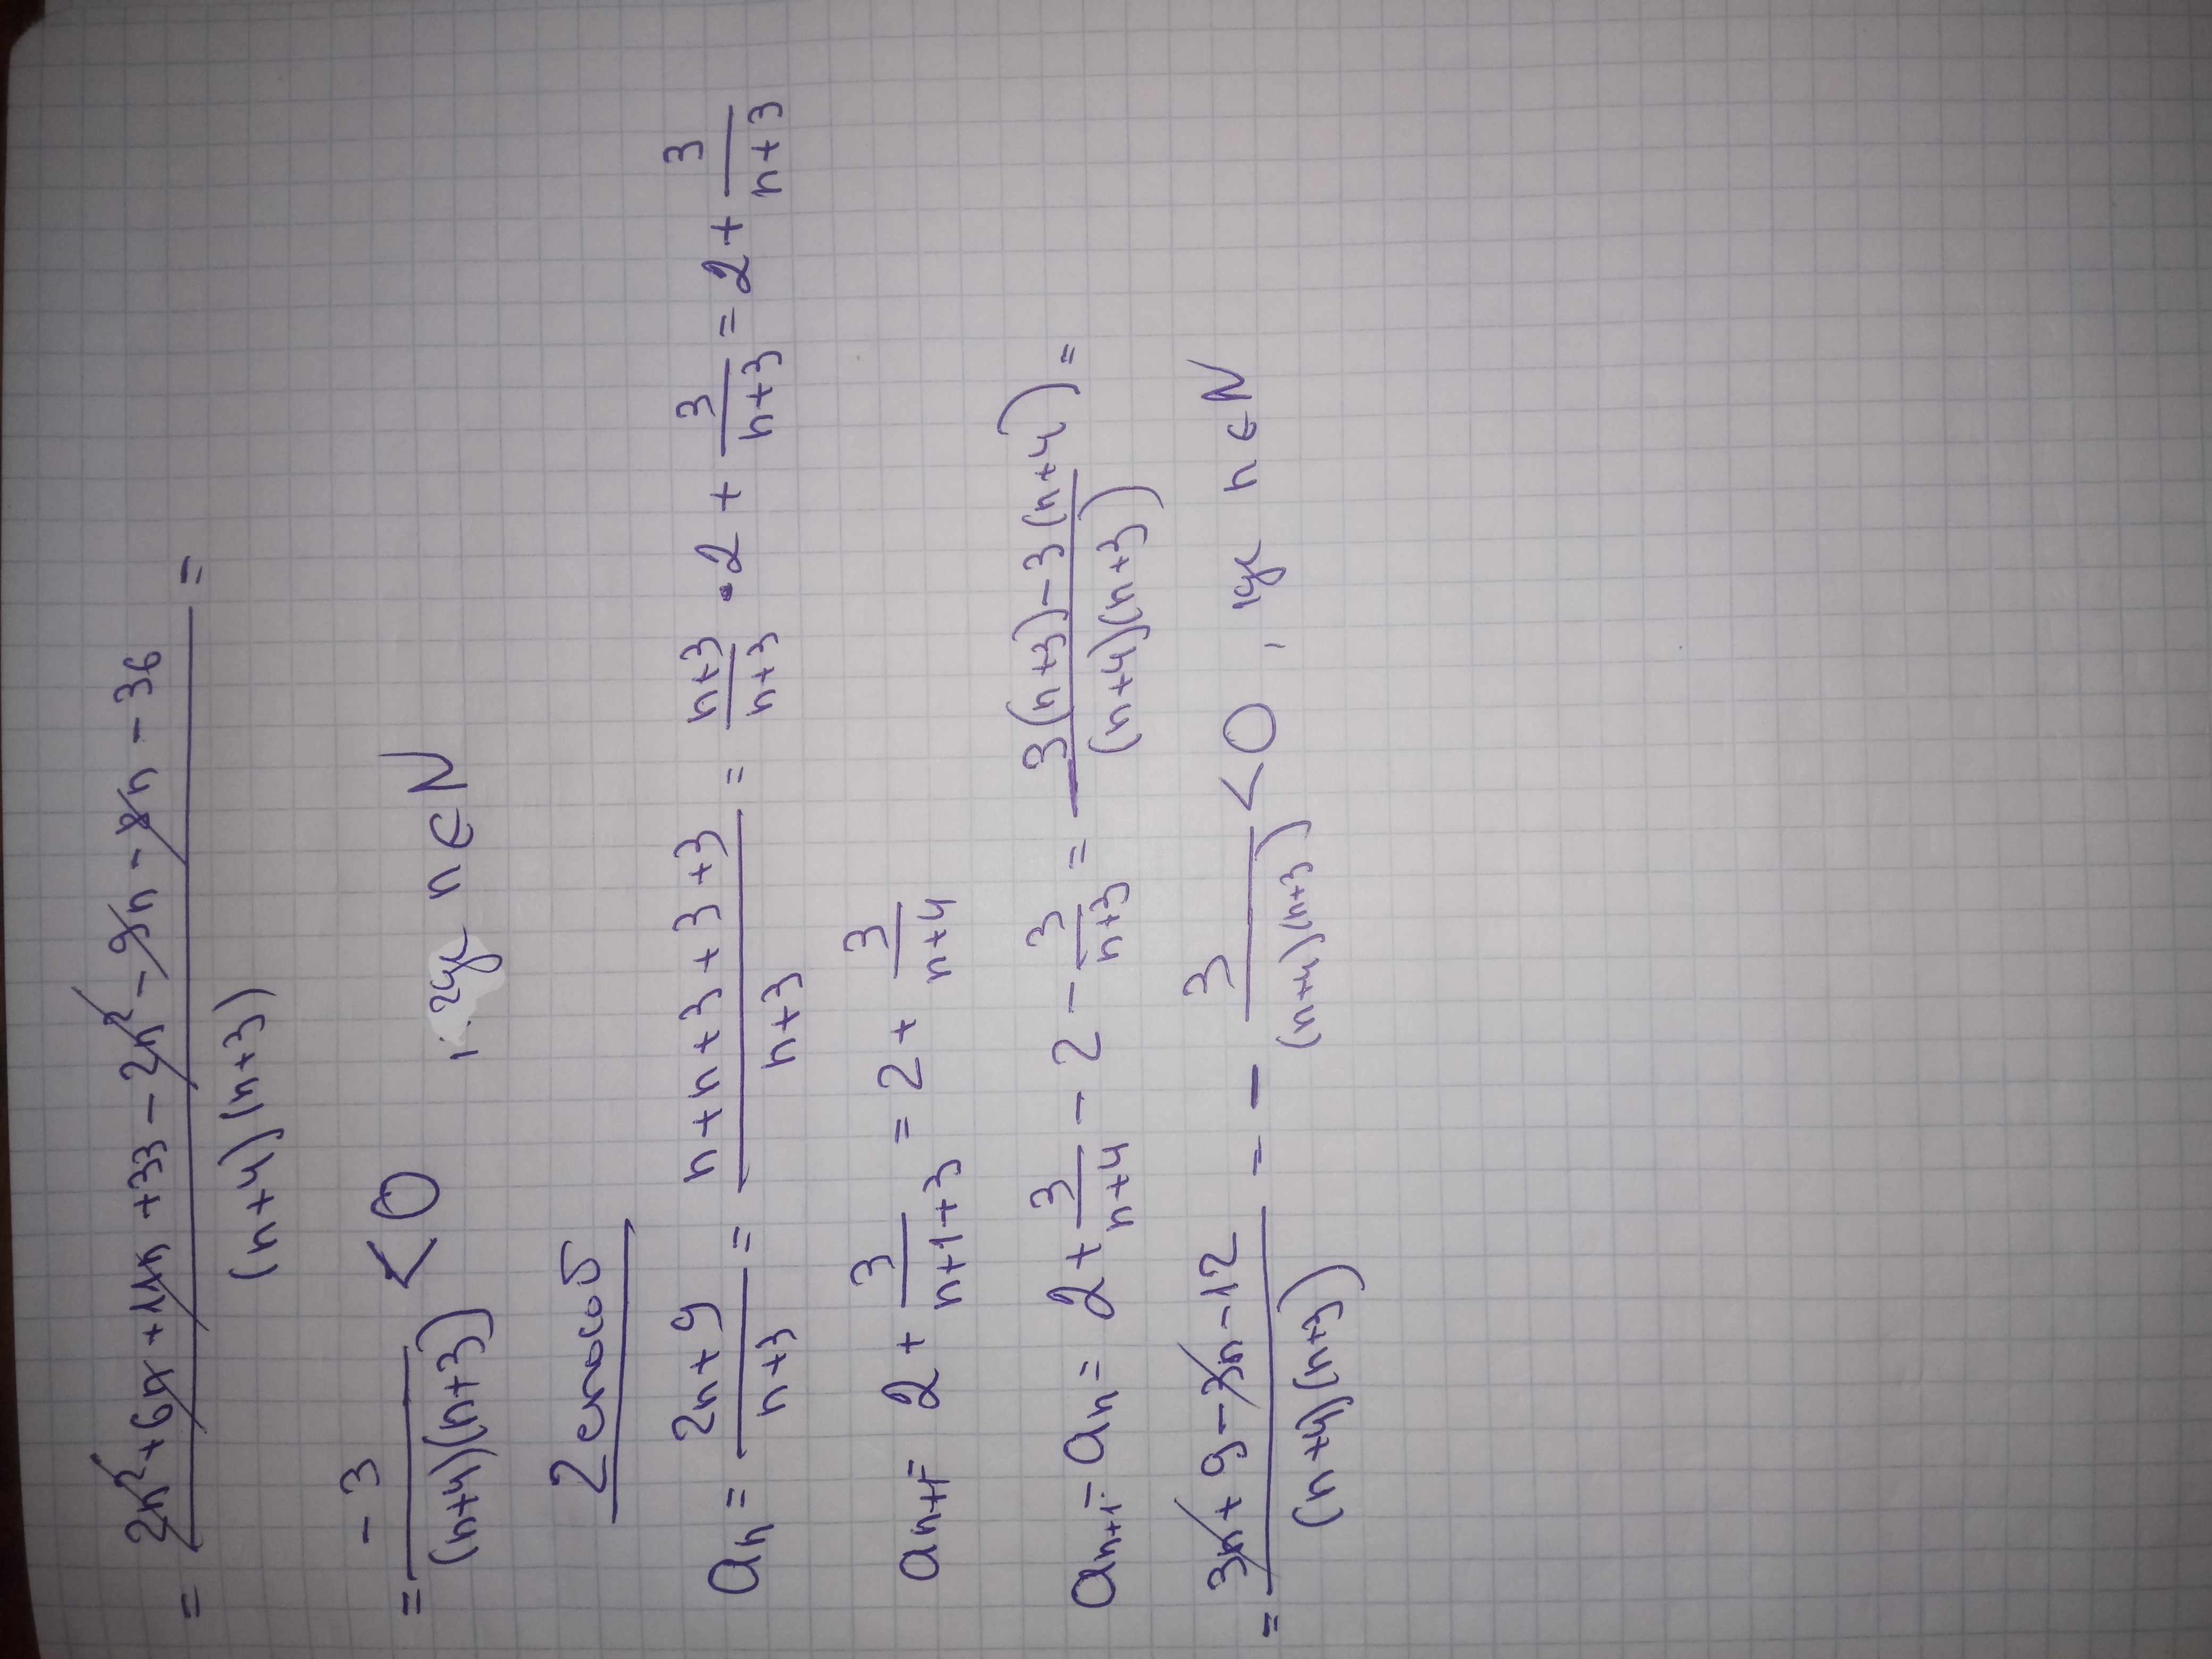 = (2n² + 6n + 11n + 33 - 2n² - 9n - 8n - 36) / ((n+4)(n+3)) =
= -3 / ((n+4)(n+3)) < 0, где n ∈ N
2 способ
aₙ = (2n+9)/(n+3) = (n+n+3+3+3)/(n+3) = (n+3)/(n+3) · 2 + 3/(n+3) = 2 + 3/(n+3)
aₙ₊₁ = 2 + 3/(n+1+3) = 2 + 3/(n+4)
aₙ₊₁ - aₙ = 2 + 3/(n+4) - 2 - 3/(n+3) = (3(n+3) - 3(n+4)) / ((n+4)(n+3)) =
= (3n + 9 - 3n - 12) / ((n+4)(n+3)) = - 3/((n+4)(n+3)) < 0, где n ∈ N